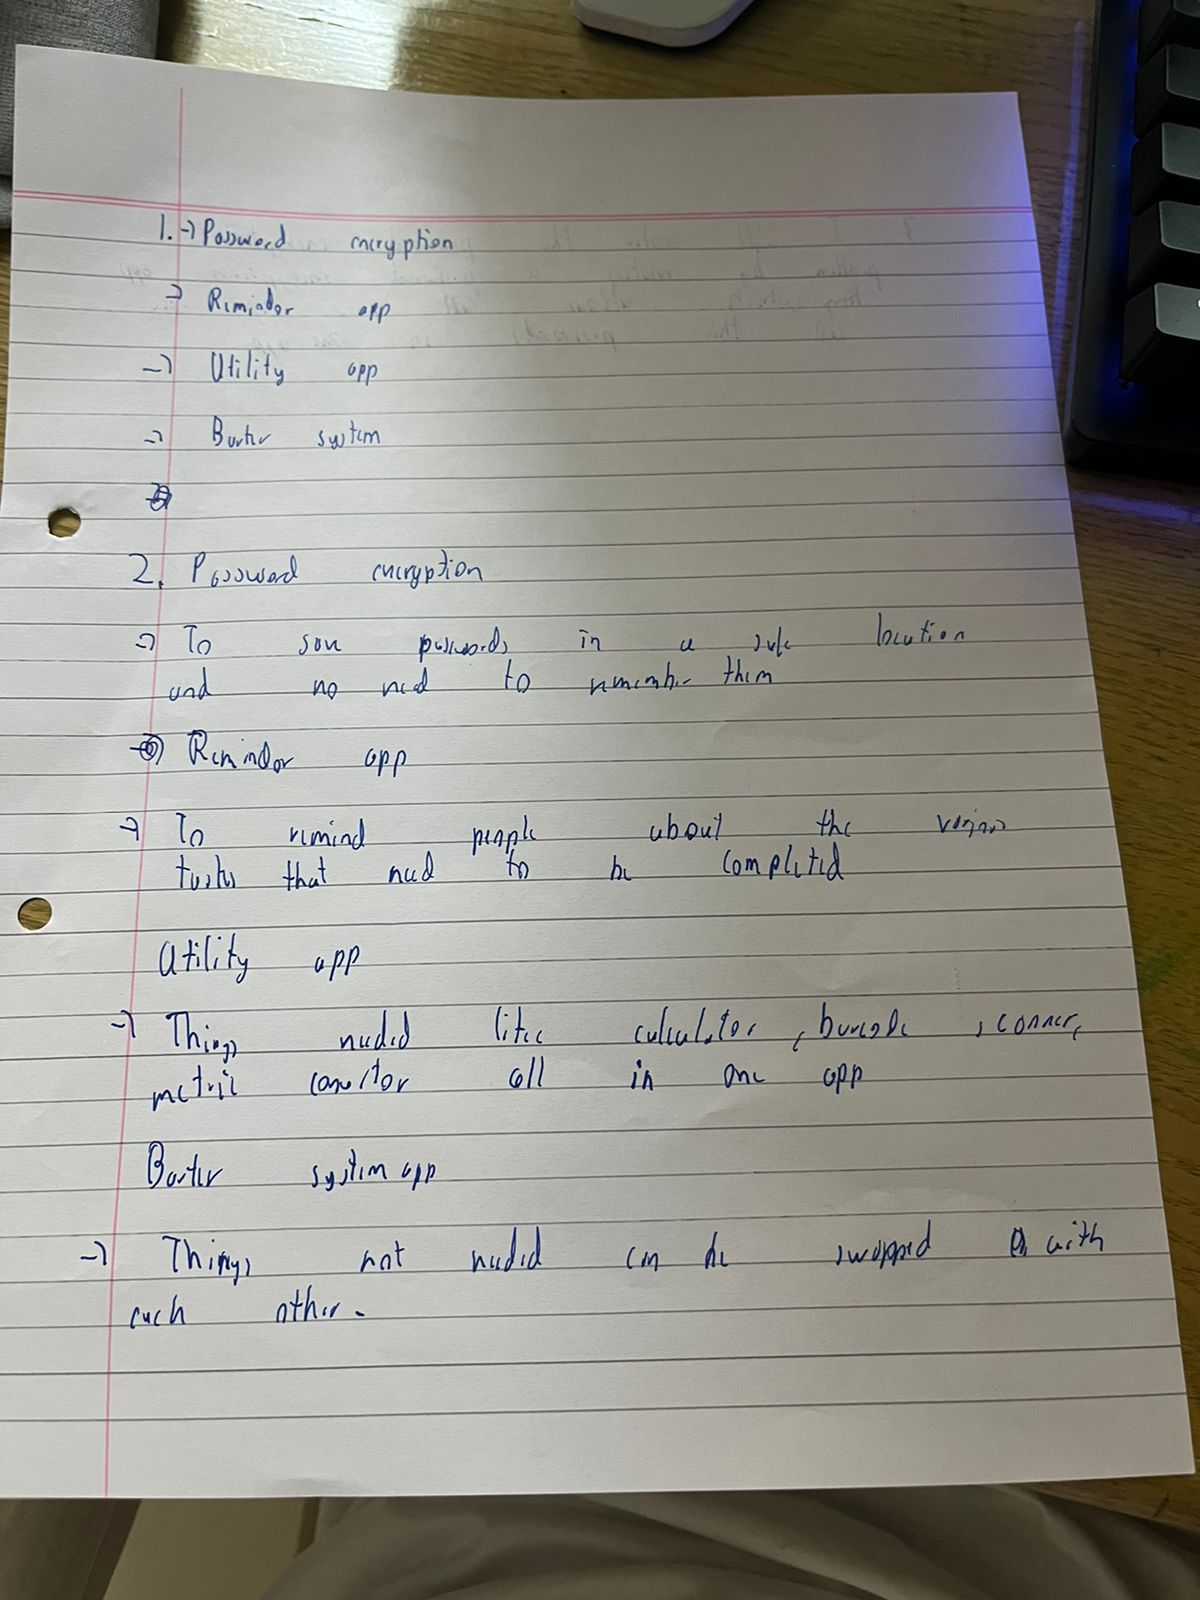 1. → Password encryption
→ Remindor app
→ Utility app
→ Barter system
2. Password encryption
→ To save passwords in a safe location
and no need to remember them
Remindor app
→ To remind people about the various
tasks that need to be completed
Utility app
→ Things needed like calculator, barcode scanner,
metric convertor all in one app
Barter system app
→ Things not needed can be swapped with
each other.